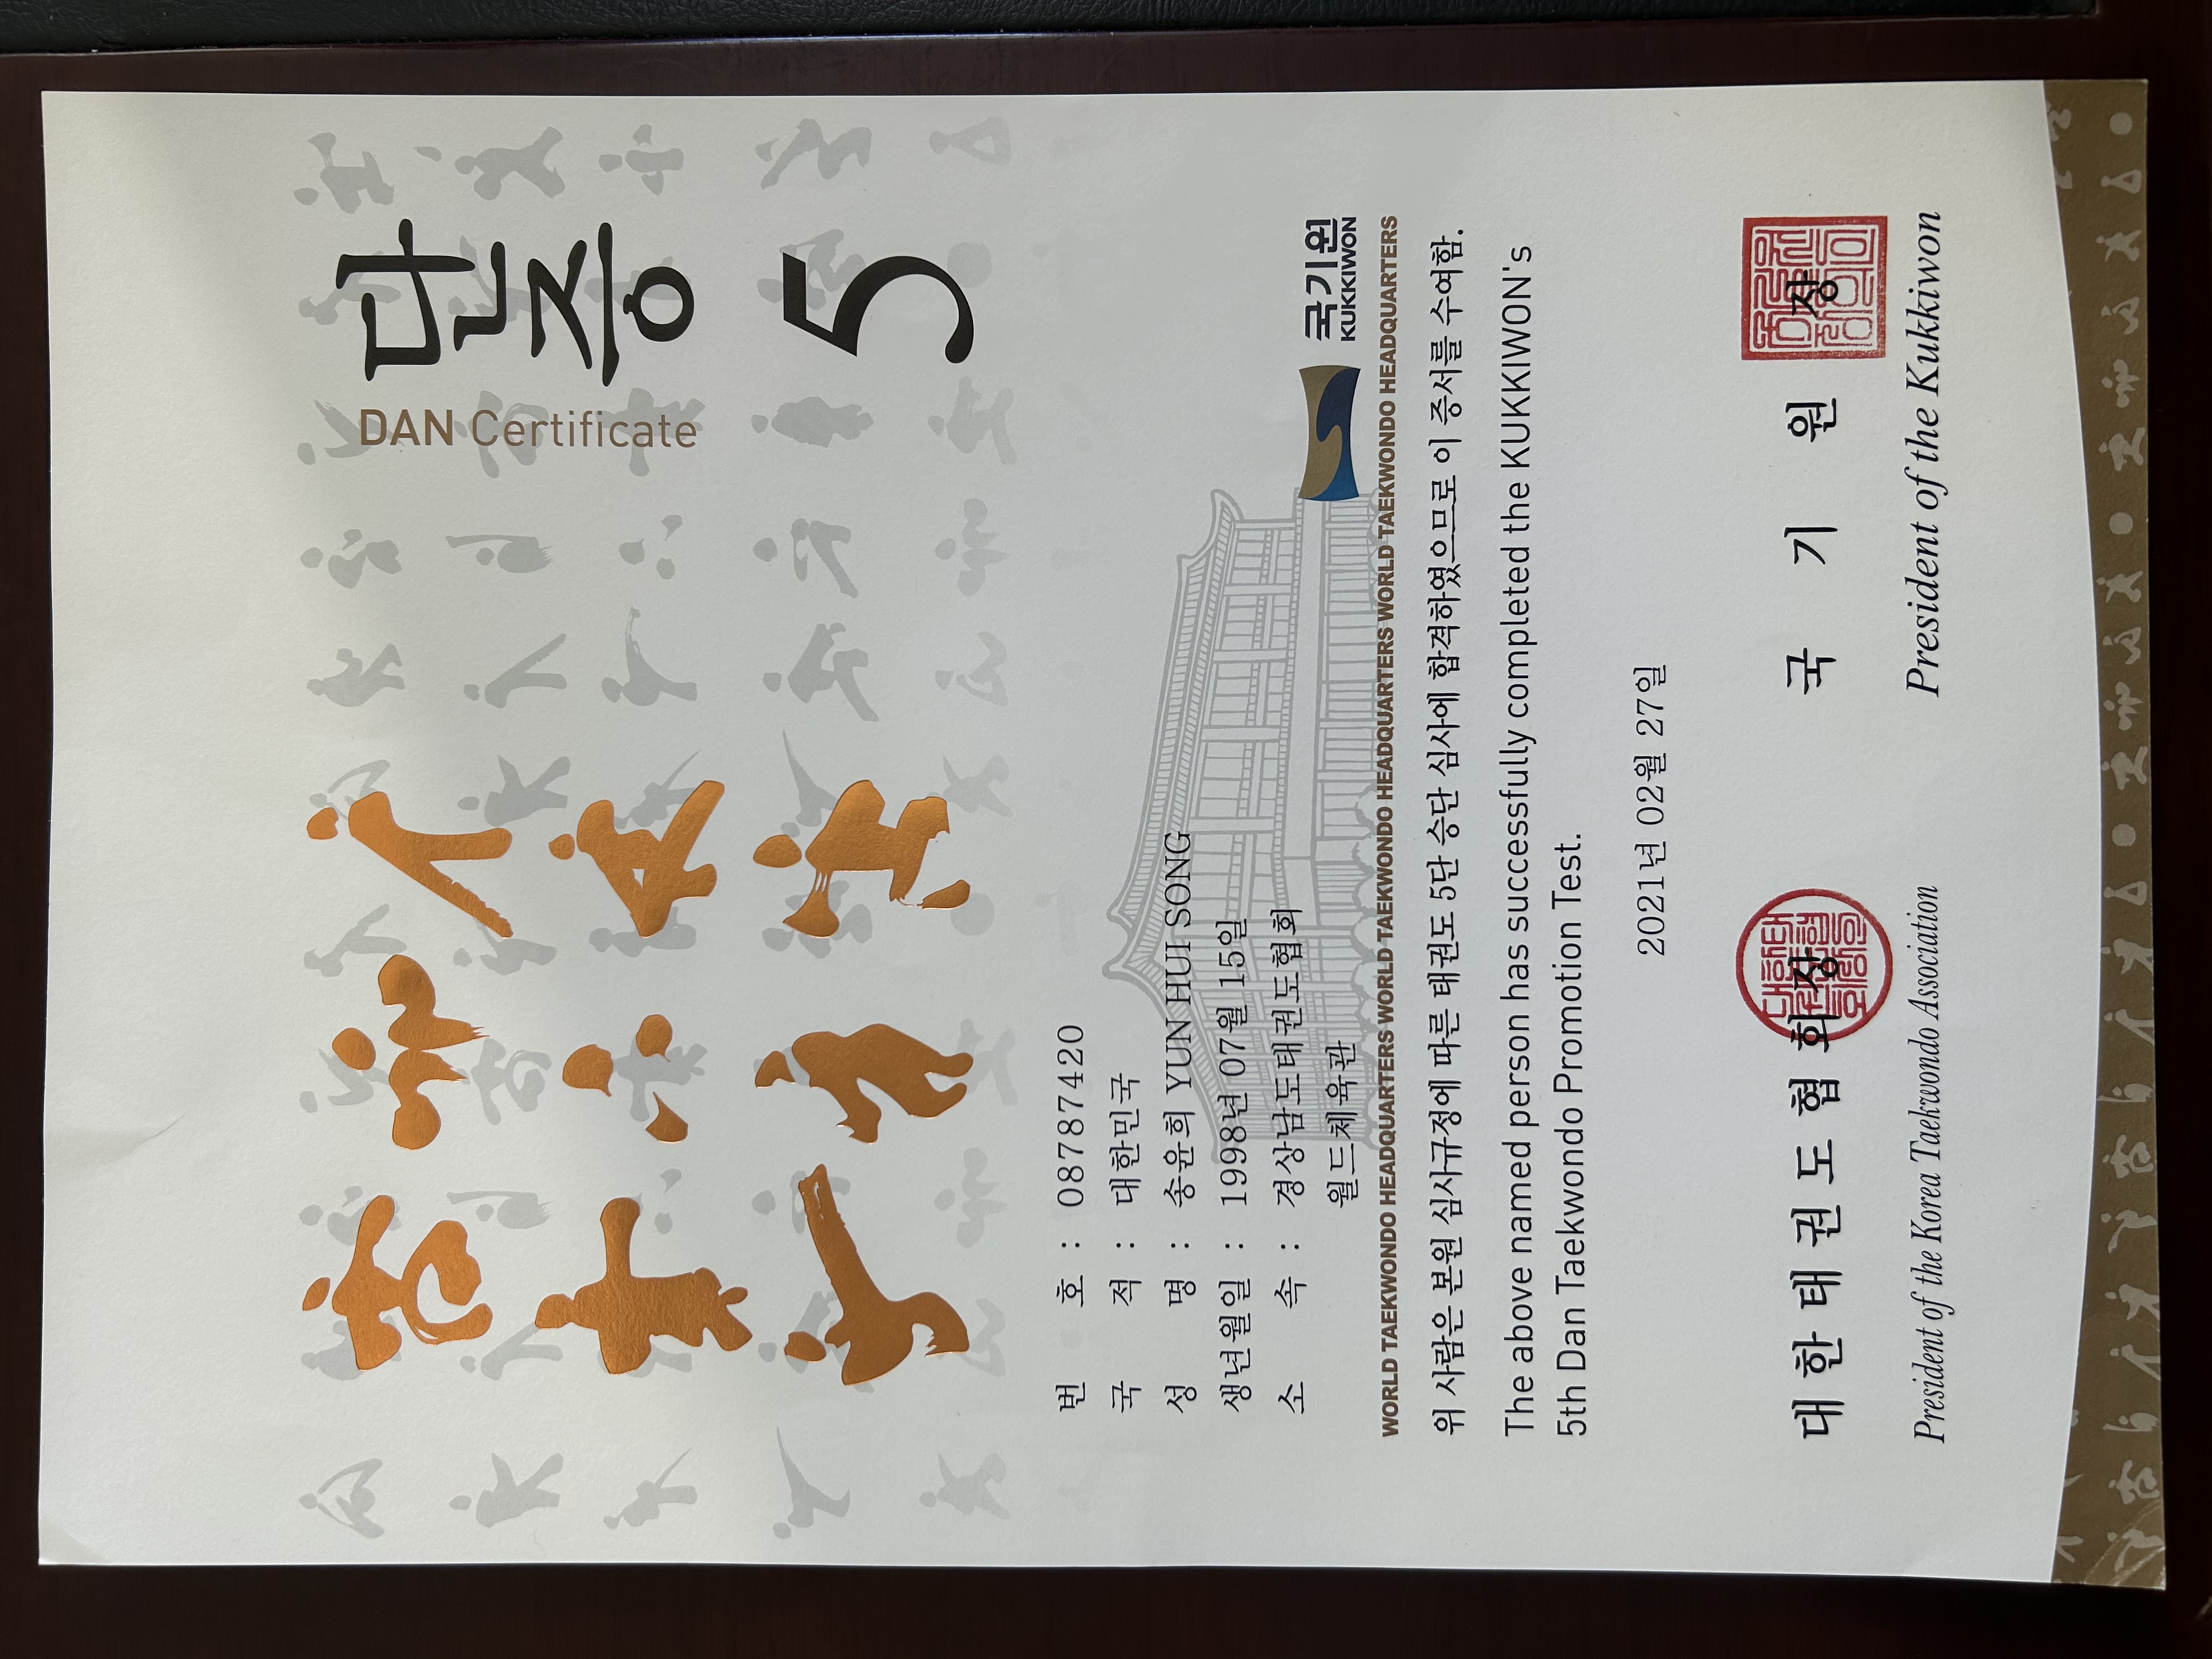 단증
DAN Certificate
5
번 호 : 08787420
국 적 : 대한민국
성 명 : 송윤희 YUN HUI SONG
생년월일 : 1998년 07월 15일
소 속 : 경상남도태권도협회
월드체육관
국기원
KUKKIWON
WORLD TAEKWONDO HEADQUARTERS WORLD TAEKWONDO HEADQUARTERS WORLD TAEKWONDO HEADQUARTERS WORLD TAEKWONDO HEADQUARTERS
위 사람은 본원 심사규정에 따른 태권도 5단 승단 심사에 합격하였으므로 이 증서를 수여함.
The above named person has successfully completed the KUKKIWON's
5th Dan Taekwondo Promotion Test.
2021년 02월 27일
대한태권도협회장 국기원장
President of the Korea Taekwondo Association President of the Kukkiwon